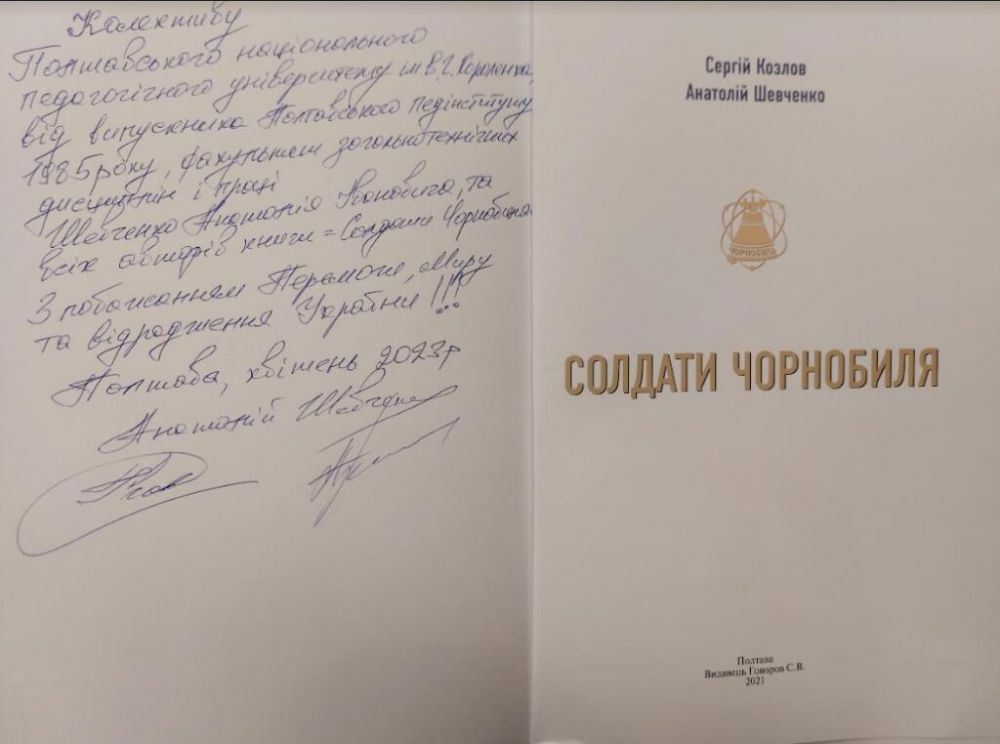 Колективу
Полтавського національного
педагогічного університету ім В.Г. Короленка,
від випускника Полтавського педінституту
1985 року, факультет загальнотехнічних
дисциплін і праці
Шевченко Анатолія Івановича, та
всіх авторів книги "Солдати Чорнобиля"
З побажанням Перемоги, Миру
та відродження України!!!
Полтава, квітень 2023р
Анатолій Шевченко
Сергій Козлов
Анатолій Шевченко
ЧОРНОБИЛЬ
СОЛДАТИ ЧОРНОБИЛЯ
Полтава
Видавець Говоров С.В.
2021